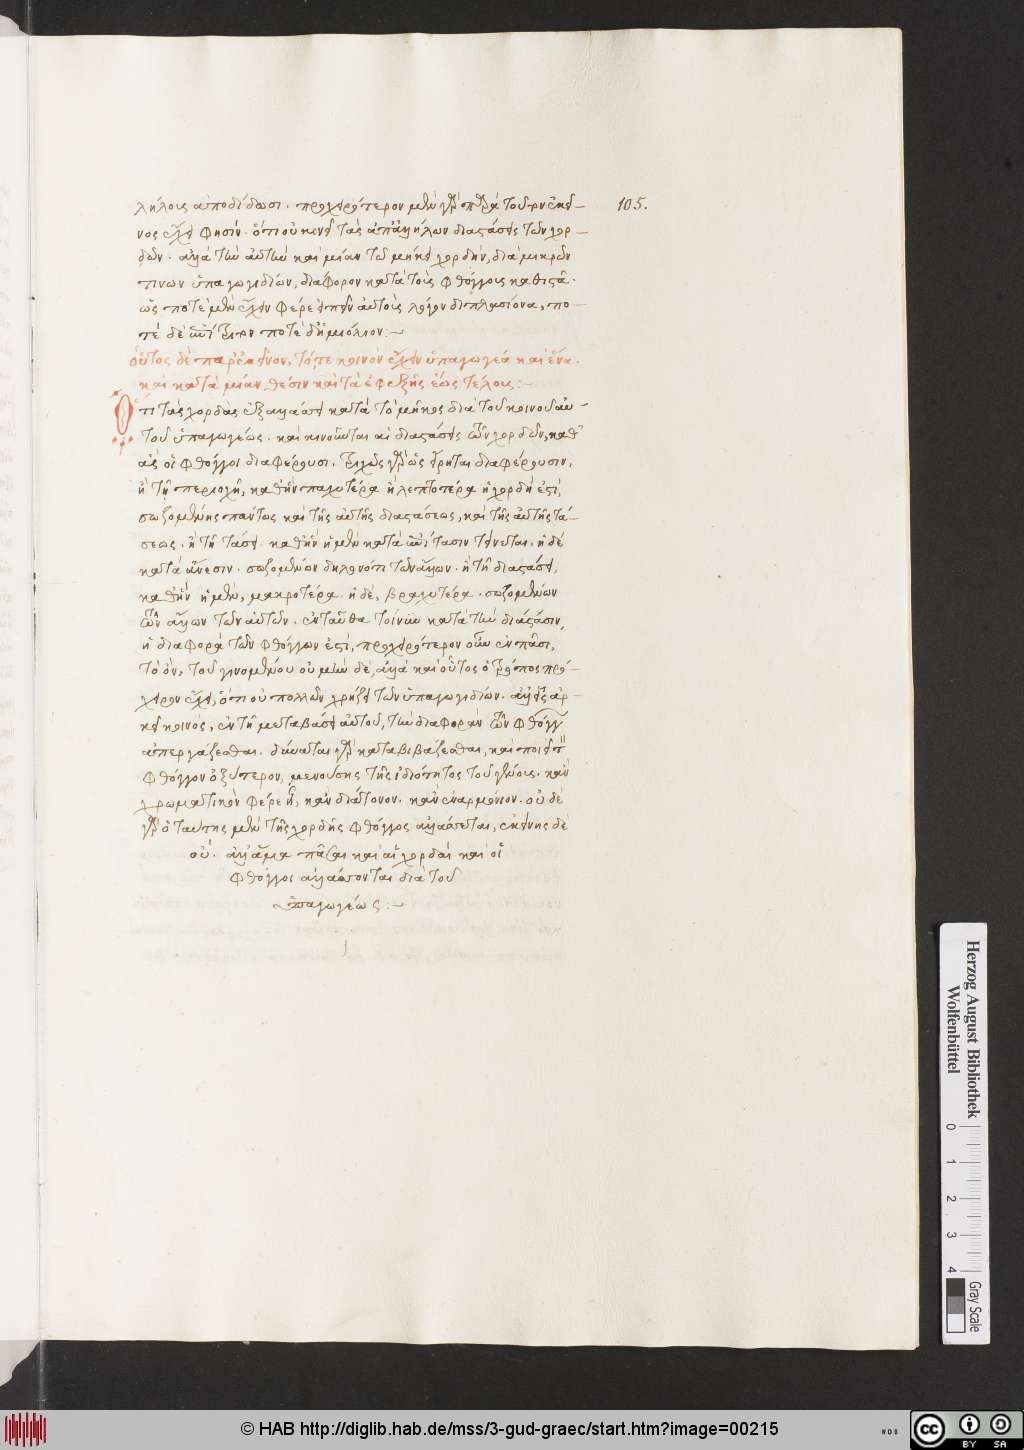 λήλοις ἀποδίδωσι. προχειρότερον μὲν γὰρ παρὰ τοῦτον ἐκεῖ- 105.
νος ἔχει φησίν. ὅτι οὐ κινεῖ τὰς ἀπ' ἀλλήλων διαστάσεις τῶν χορ-
δῶν. ἀλλὰ τὴν αὐτὴν καὶ μίαν τῷ μήκει χορδὴν, διὰ μικρῶν
τινων ὑπαγωγιδίων, διάφορον κατὰ τοὺς φθόγγους καθιστᾷ.
ὥς ποτε μὲν ἔχειν φέρε εἰπεῖν αὐτοὺς λόγον διπλασίονα, πο-
τὲ δὲ ἐπίτριτον ποτὲ δὲ ἡμιόλιον:~
οὗτος δὲ παρ' ἐκεῖνον, τό, τε κοινὸν ἔχειν ὑπαγωγέα καὶ ἕνα.
καὶ κατὰ μίαν θέσιν καὶ τὰ ἐφεξῆς ἕως τέλους:~
Ὅτι τὰς χορδὰς ἐξαλλάσσει κατὰ τὸ μῆκος διὰ τοῦ κοινοῦ αὐ-
τοῦ ὑπαγωγέως. καὶ κινοῦνται αἱ διαστάσεις τῶν χορδῶν, καθ'
ἃς οἱ φθόγγοι διαφέρουσι. τριχῶς γὰρ ὡς εἴρηται διαφέρουσιν,
ἢ τῇ περιοχῇ, καθ' ἣν παχυτέρα ἢ λεπτοτέρα ἡ χορδή ἐστι,
σωζομένης πάντως καὶ τῆς αὐτῆς διαστάσεως, καὶ τῆς αὐτῆς τά-
σεως. ἢ τῇ τάσει καθ' ἣν ἡ μὲν κατὰ ἐπίτασιν τείνεται. ἡ δὲ
κατὰ ἄνεσιν. σωζομένων δηλονότι τῶν ἄλλων. ἢ τῇ διαστάσει,
καθ' ἣν ἡ μὲν, μακροτέρα. ἡ δὲ, βραχυτέρα. σωζομένων
τῶν ἄλλων τῶν αὐτῶν. ἐνταῦθα τοίνυν κατὰ τὴν διάστασιν,
ἡ διαφορὰ τῶν φθόγγων ἐστί, προχειρότερον οὖν ἐν πᾶσι,
τὸ ὂν, τοῦ γινομένου οὐ μὴν δὲ, ἀλλὰ καὶ οὗτος ὁ τρόπος πρό-
χειρον ἔχει, ὅτι οὐ πολλῶν χρῄζει τῶν ὑπαγωγιδίων. ἀλλ' εἷς ἀρ-
κεῖ κοινὸς, ἐν τῇ μεταβάσει αὐτοῦ, τὴν διαφορὰν τῶν φθόγγ
ἀπεργάζεσθαι. δύναται γὰρ καταβιβάζεσθαι, καὶ ποιεῖ τ
φθόγγον ὀξύτερον, μενούσης τῆς ἰδιότητος τοῦ γένους. κἂν
χρωματικὸν φέρε ᾖ, κἂν διάτονον. κἂν ἐναρμόνιον. οὐδὲ
γὰρ ὁ ταύτης μὲν τῆς χορδῆς φθόγγος ἀλλάσσεται, ἐκείνης δὲ
οὔ. ἀλλ' ἅμα πᾶσαι καὶ αἱ χορδαὶ καὶ οἱ
φθόγγοι ἀλλάσσονται διὰ τοῦ
ὑπαγωγέως:~
Herzog August Bibliothek
Wolfenbüttel
0 1 2 3 4
Gray Scale
© HAB http://diglib.hab.de/mss/3-gud-graec/start.htm?image=00215
WDB
cc BY SA